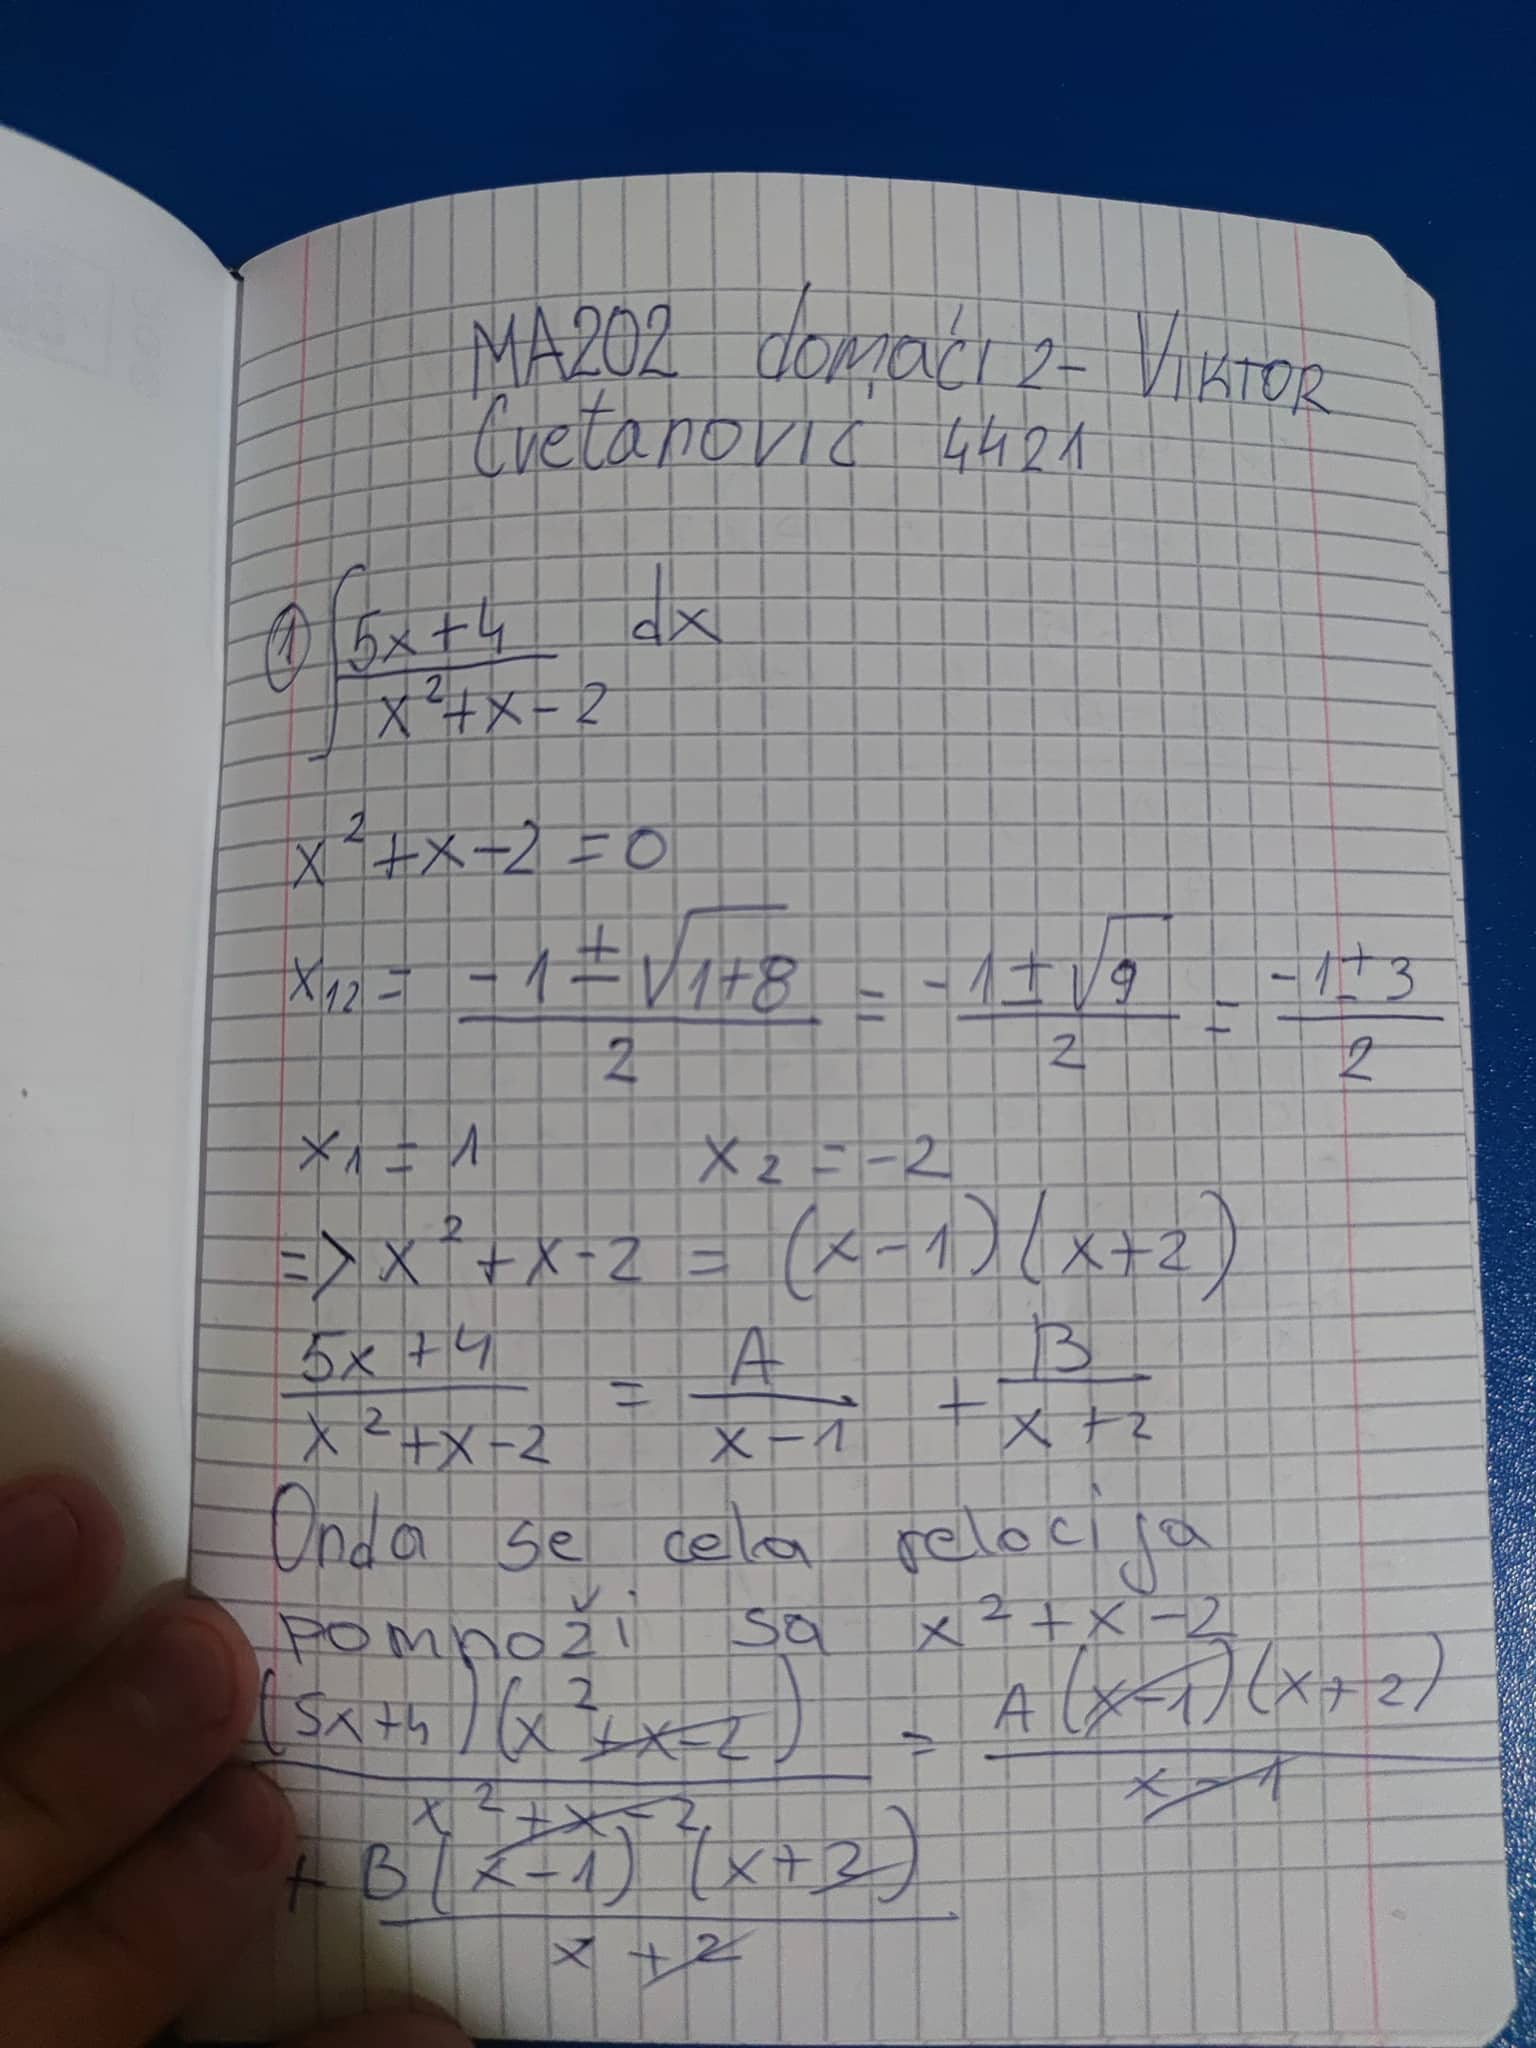 MA202 domaći 2- VIKTOR
Cvetanović 4421
① ∫ (5x+4)/(x²+x-2) dx
x²+x-2=0
x₁₂ = (-1±√(1+8))/2 = (-1±√9)/2 = (-1±3)/2
x₁ = 1 x₂ = -2
=> x²+x-2 = (x-1)(x+2)
(5x+4)/(x²+x-2) = A/(x-1) + B/(x+2)
Onda se cela relacija
pomnoži sa x²+x-2
(5x+4)(x²+x-2)/(x²+x-2) = A(x-1)(x+2)/(x-1)
+ B(x-1)(x+2)/(x+2)